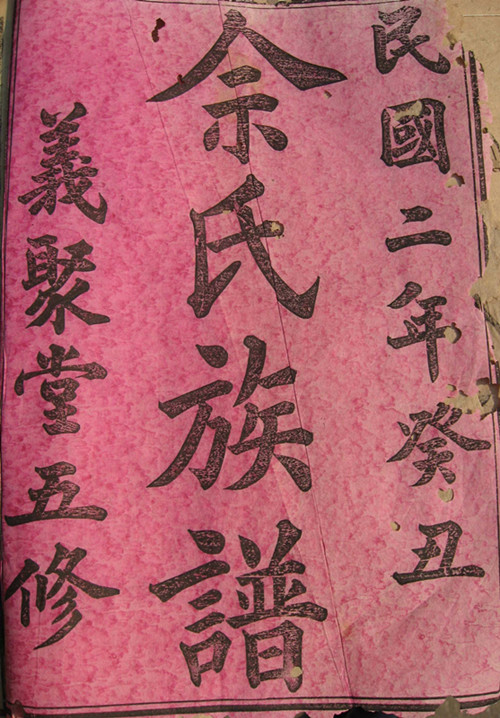 民國二年癸丑
佘氏族譜
義聚堂五修